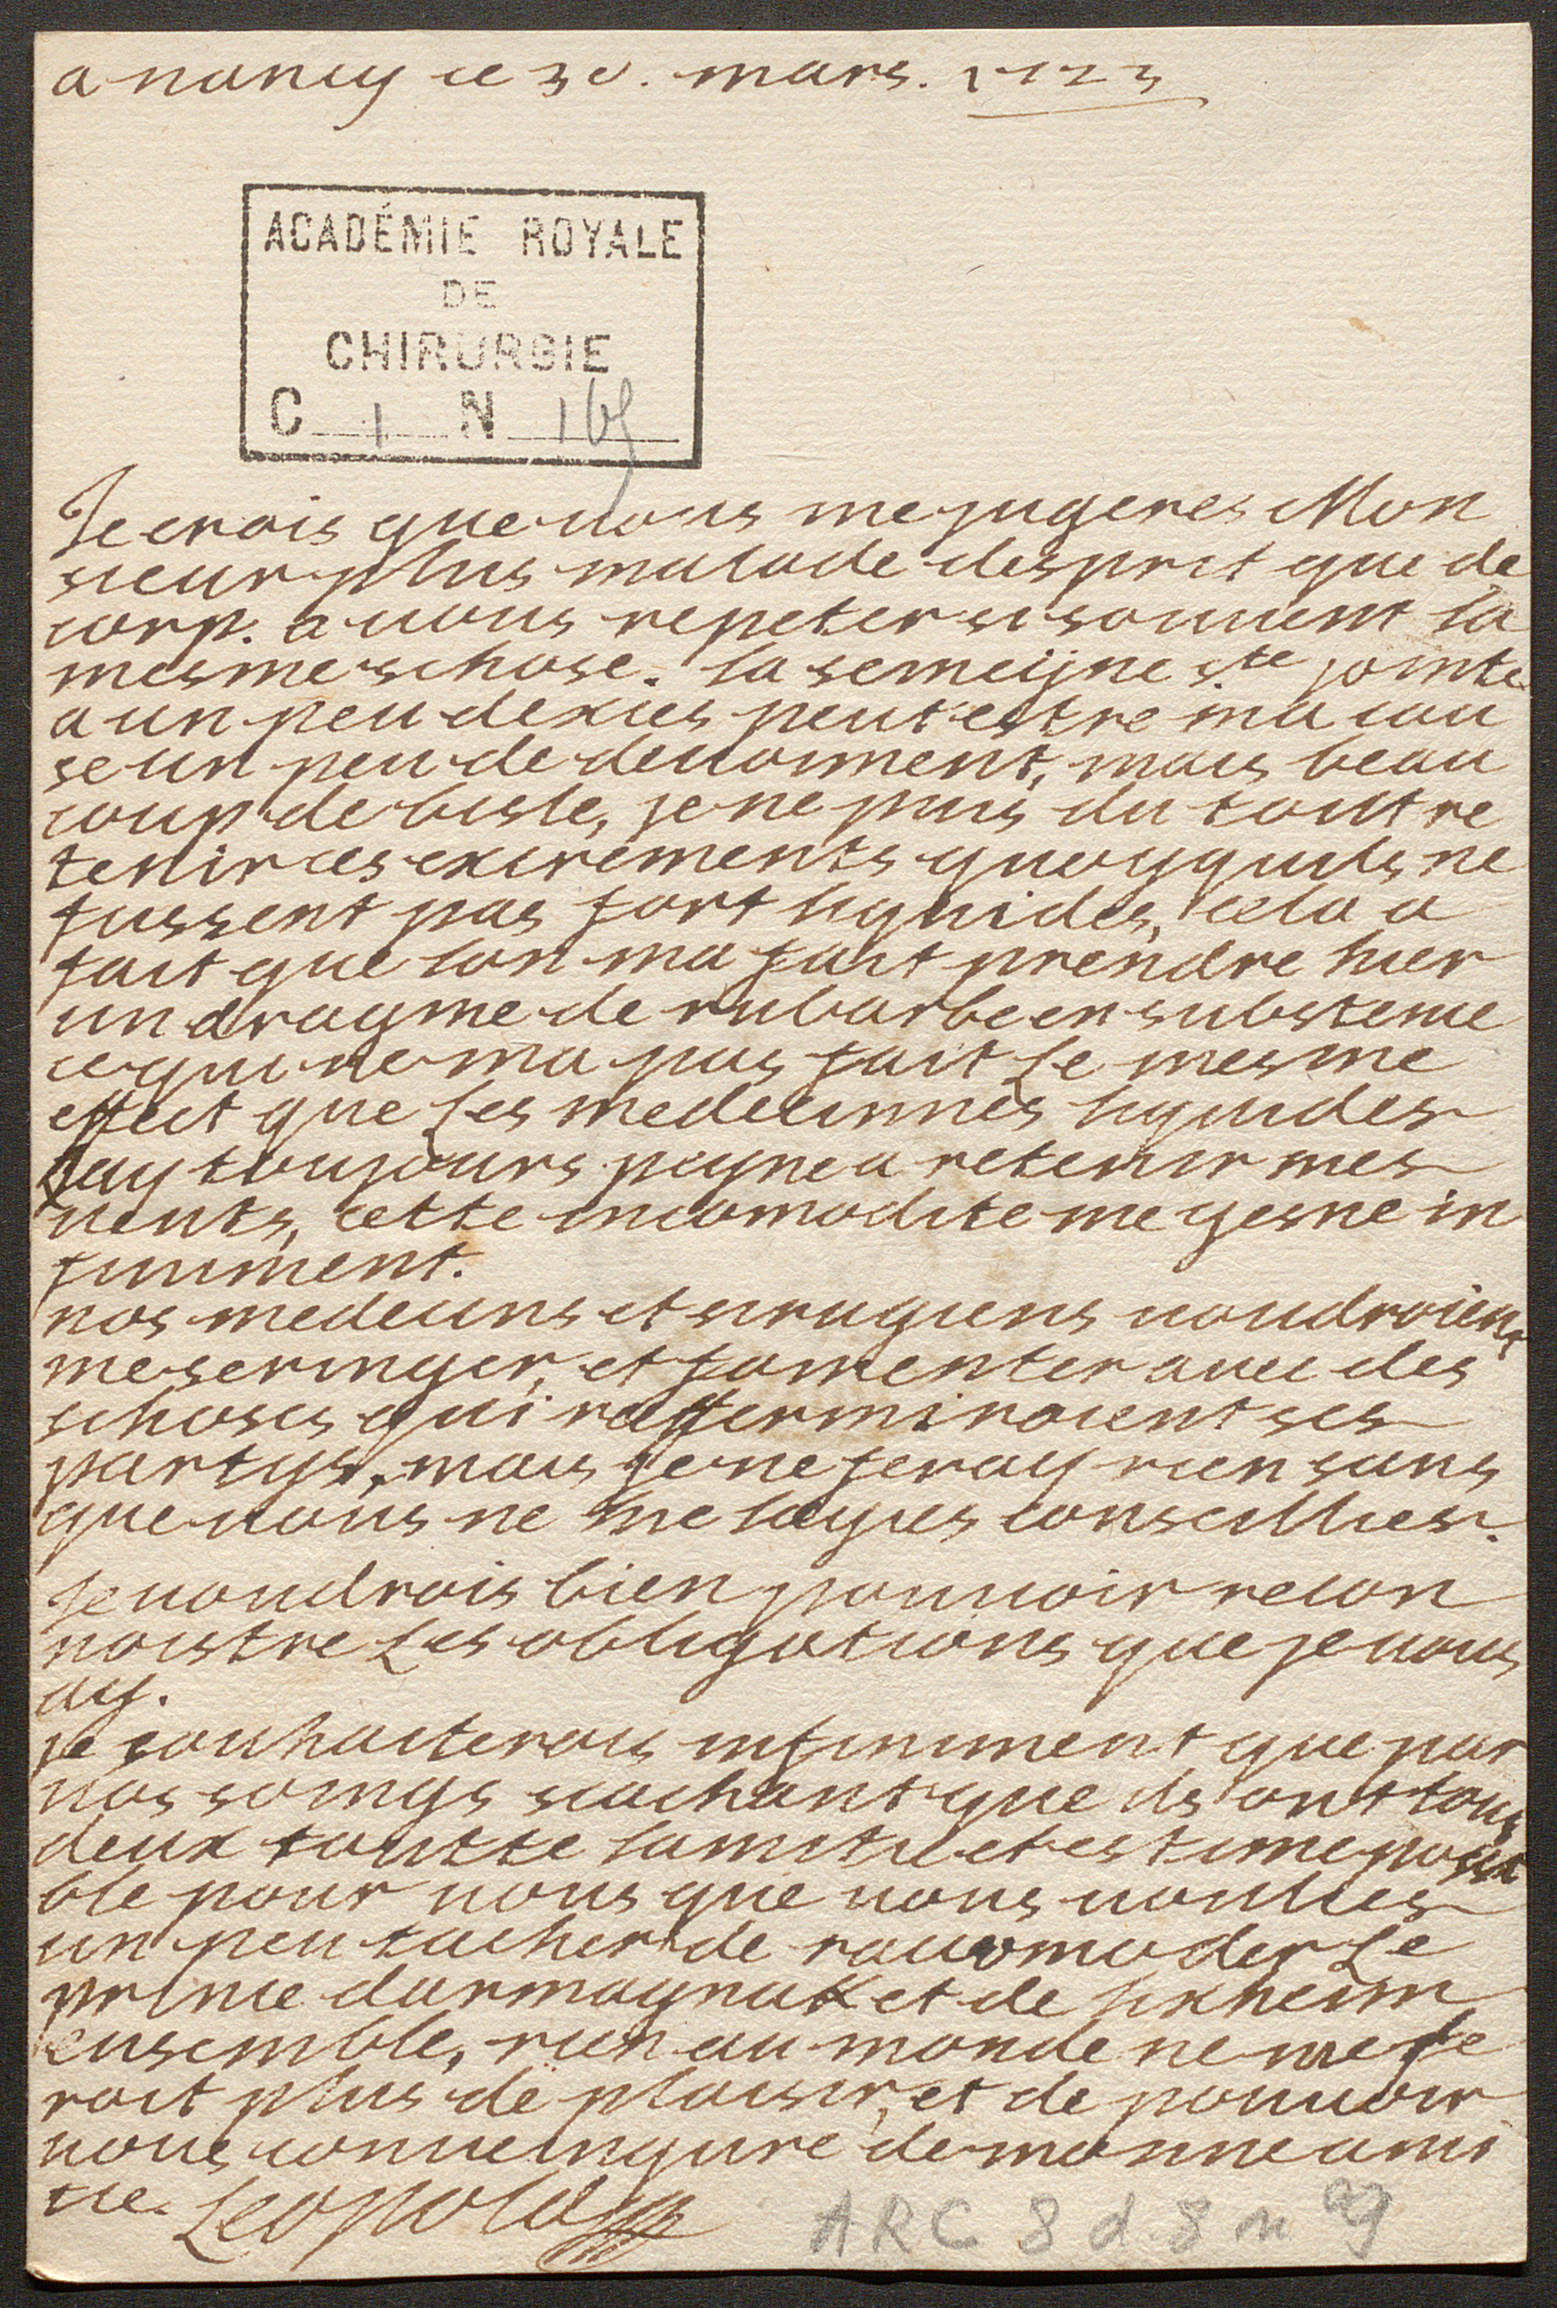 a nancy ce 30. mars. 1723
ACADÉMIE ROYALE
DE
CHIRURGIE
C 1 N 165
Je crois que vous me jugeres Mon
sieur plus malade desprit que de
corp. a vous repeter si souvent la
mesme schose. la semeijne s.te jointe
a un peu dexces peut estre ma cau
se un peu de devoiment, mais beau
coup de bisle, je ne puis du tout re
tenir les excrements quoyquils ne
fussent pas fort liquides, cela a
fait que lon ma fait prendre hier
un dragme de rubarbe en substence
ce qui ne ma pas fait le mesme
effect que les medecinnes liquides
Jay toujours peyne a retenir mes
vents, cette incomodite me gesne in
finiment.
nos medecins et sirugiens voudroient
me seringer, et fomenter avec des
schoses qui raffermiroient ses
partys, mais je ne feray rien sans
que vous ne me layies conseillies.
Je voudrois bien pouvoir recon
noistre les obligations que je vous
ay.
je souhaiterois infiniment que par
vos soings scachant que ils ont tous
deux toutte lamitie et estime possi
ble pour vous que vous voulies
un peu tacher de racomoder le
prince darmagnak et de lixheim
ensemble, rien au monde ne me fe
roit plus de plaisir, et de pouvoir
vous conveingure de monne ami
tie. Leopold
ARC 8 d 8 n° 9